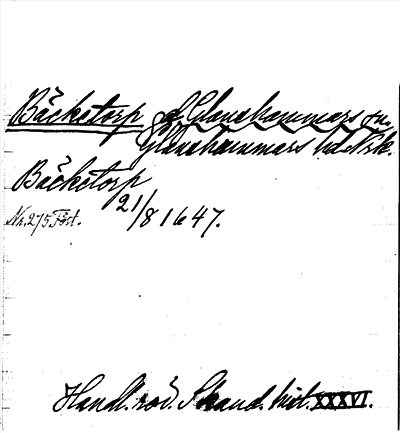 Bäcketorp gd Glanshammars sn.
Glanshammars hd Nrk.
Bäcketorp
21/8 1647.
Nr. 275 Fört.
Handl. rör. Skand. hist. XXXVI.